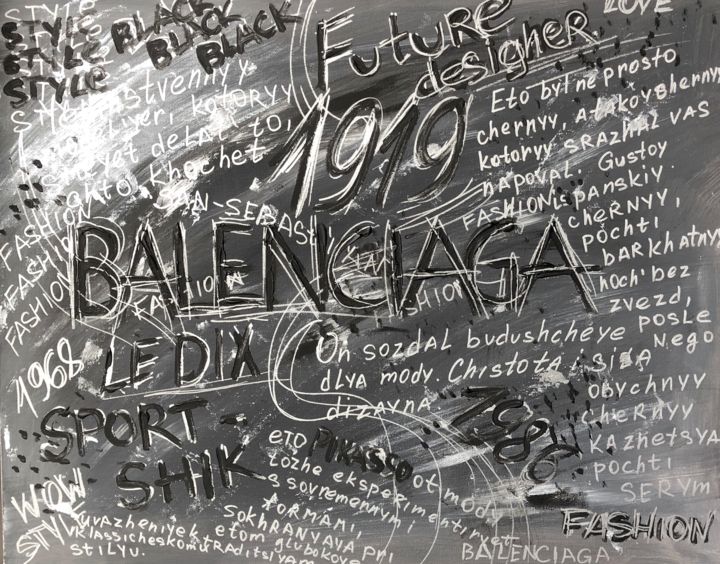 STYLE
STYLE
STYLE
STYLE
BLACK
BLACK
BLACK
LOVE
Future
designer.
1919
kotoryy
delat to,
chto khochet
Eto byl ne prosto
chernyy, a takov chernyy
kotoryy SRAZHAL VAS
napoval. Gustoy
ispanskiy
cheRNYY,
pochti
baRKhatnyy
noch' bez
zvezd,
posle
Nego
obychnyy
cheRNyy
kazhetsya
pochti
SERYM
FASHION
AN-SEBAS
FASHION
FASHION
FASHION
BALENCIAGA
FASHION
LE DIX
1968
On sozdal budushcheye
dlya mody. Chistota, sila
dizayna
SPORT-
SHIK
1986
eto PIKASSO ot mody
tozhe eksperimentiruyet
s sovremennymi
FORMAMI,
SOKHRANYAYA pri
etom glubokoye
uvazheniye k
klassicheskomu TRADITSIYAM
STILYU.
WOW
STYLE
BALENCIAGA
FASHION